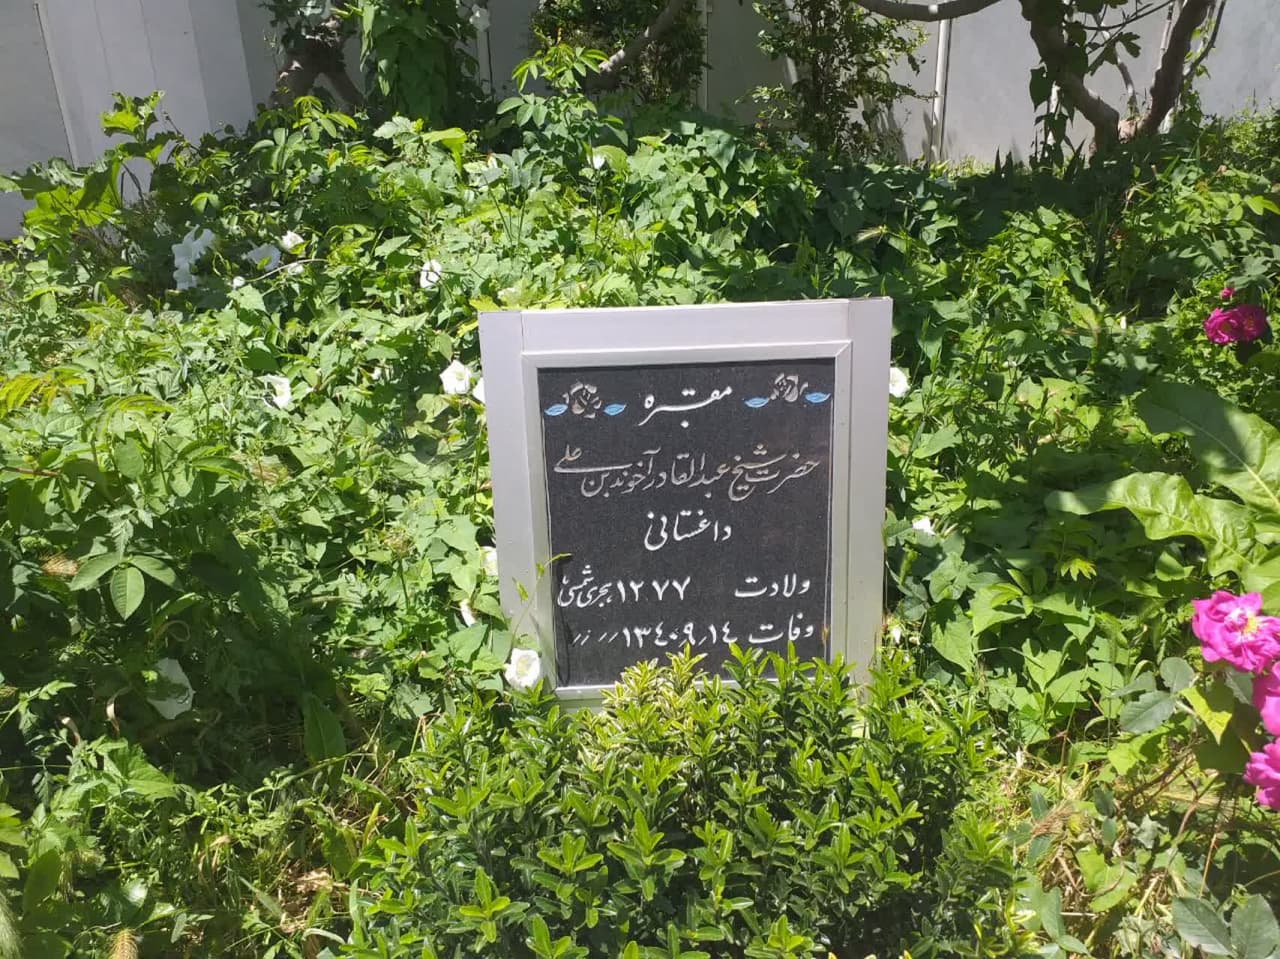 مقبره
حضرت شیخ عبدالقادر آخوند بن علی
داغستانی
ولادت ۱۲۷۷ هجری شمسی
وفات ۱۴٫۹٫۱۳۴۰ ٫٫ ٫٫